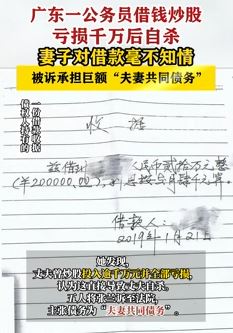 广东一公务员借钱炒股
亏损千万后自杀
妻子对借款毫不知情
被诉承担巨额“夫妻共同债务”
债权人持有的
一份借款收据
收据
兹借
人民币贰拾万元整
(¥200000.00),利息按
月肆千元算。
借款人:
2019年1月21日
她发现,
丈夫曾炒股投入逾千万元并全部亏损,
认为这直接导致丈夫自杀。
五人将张兰诉至法院,
主张债务为“夫妻共同债务”。